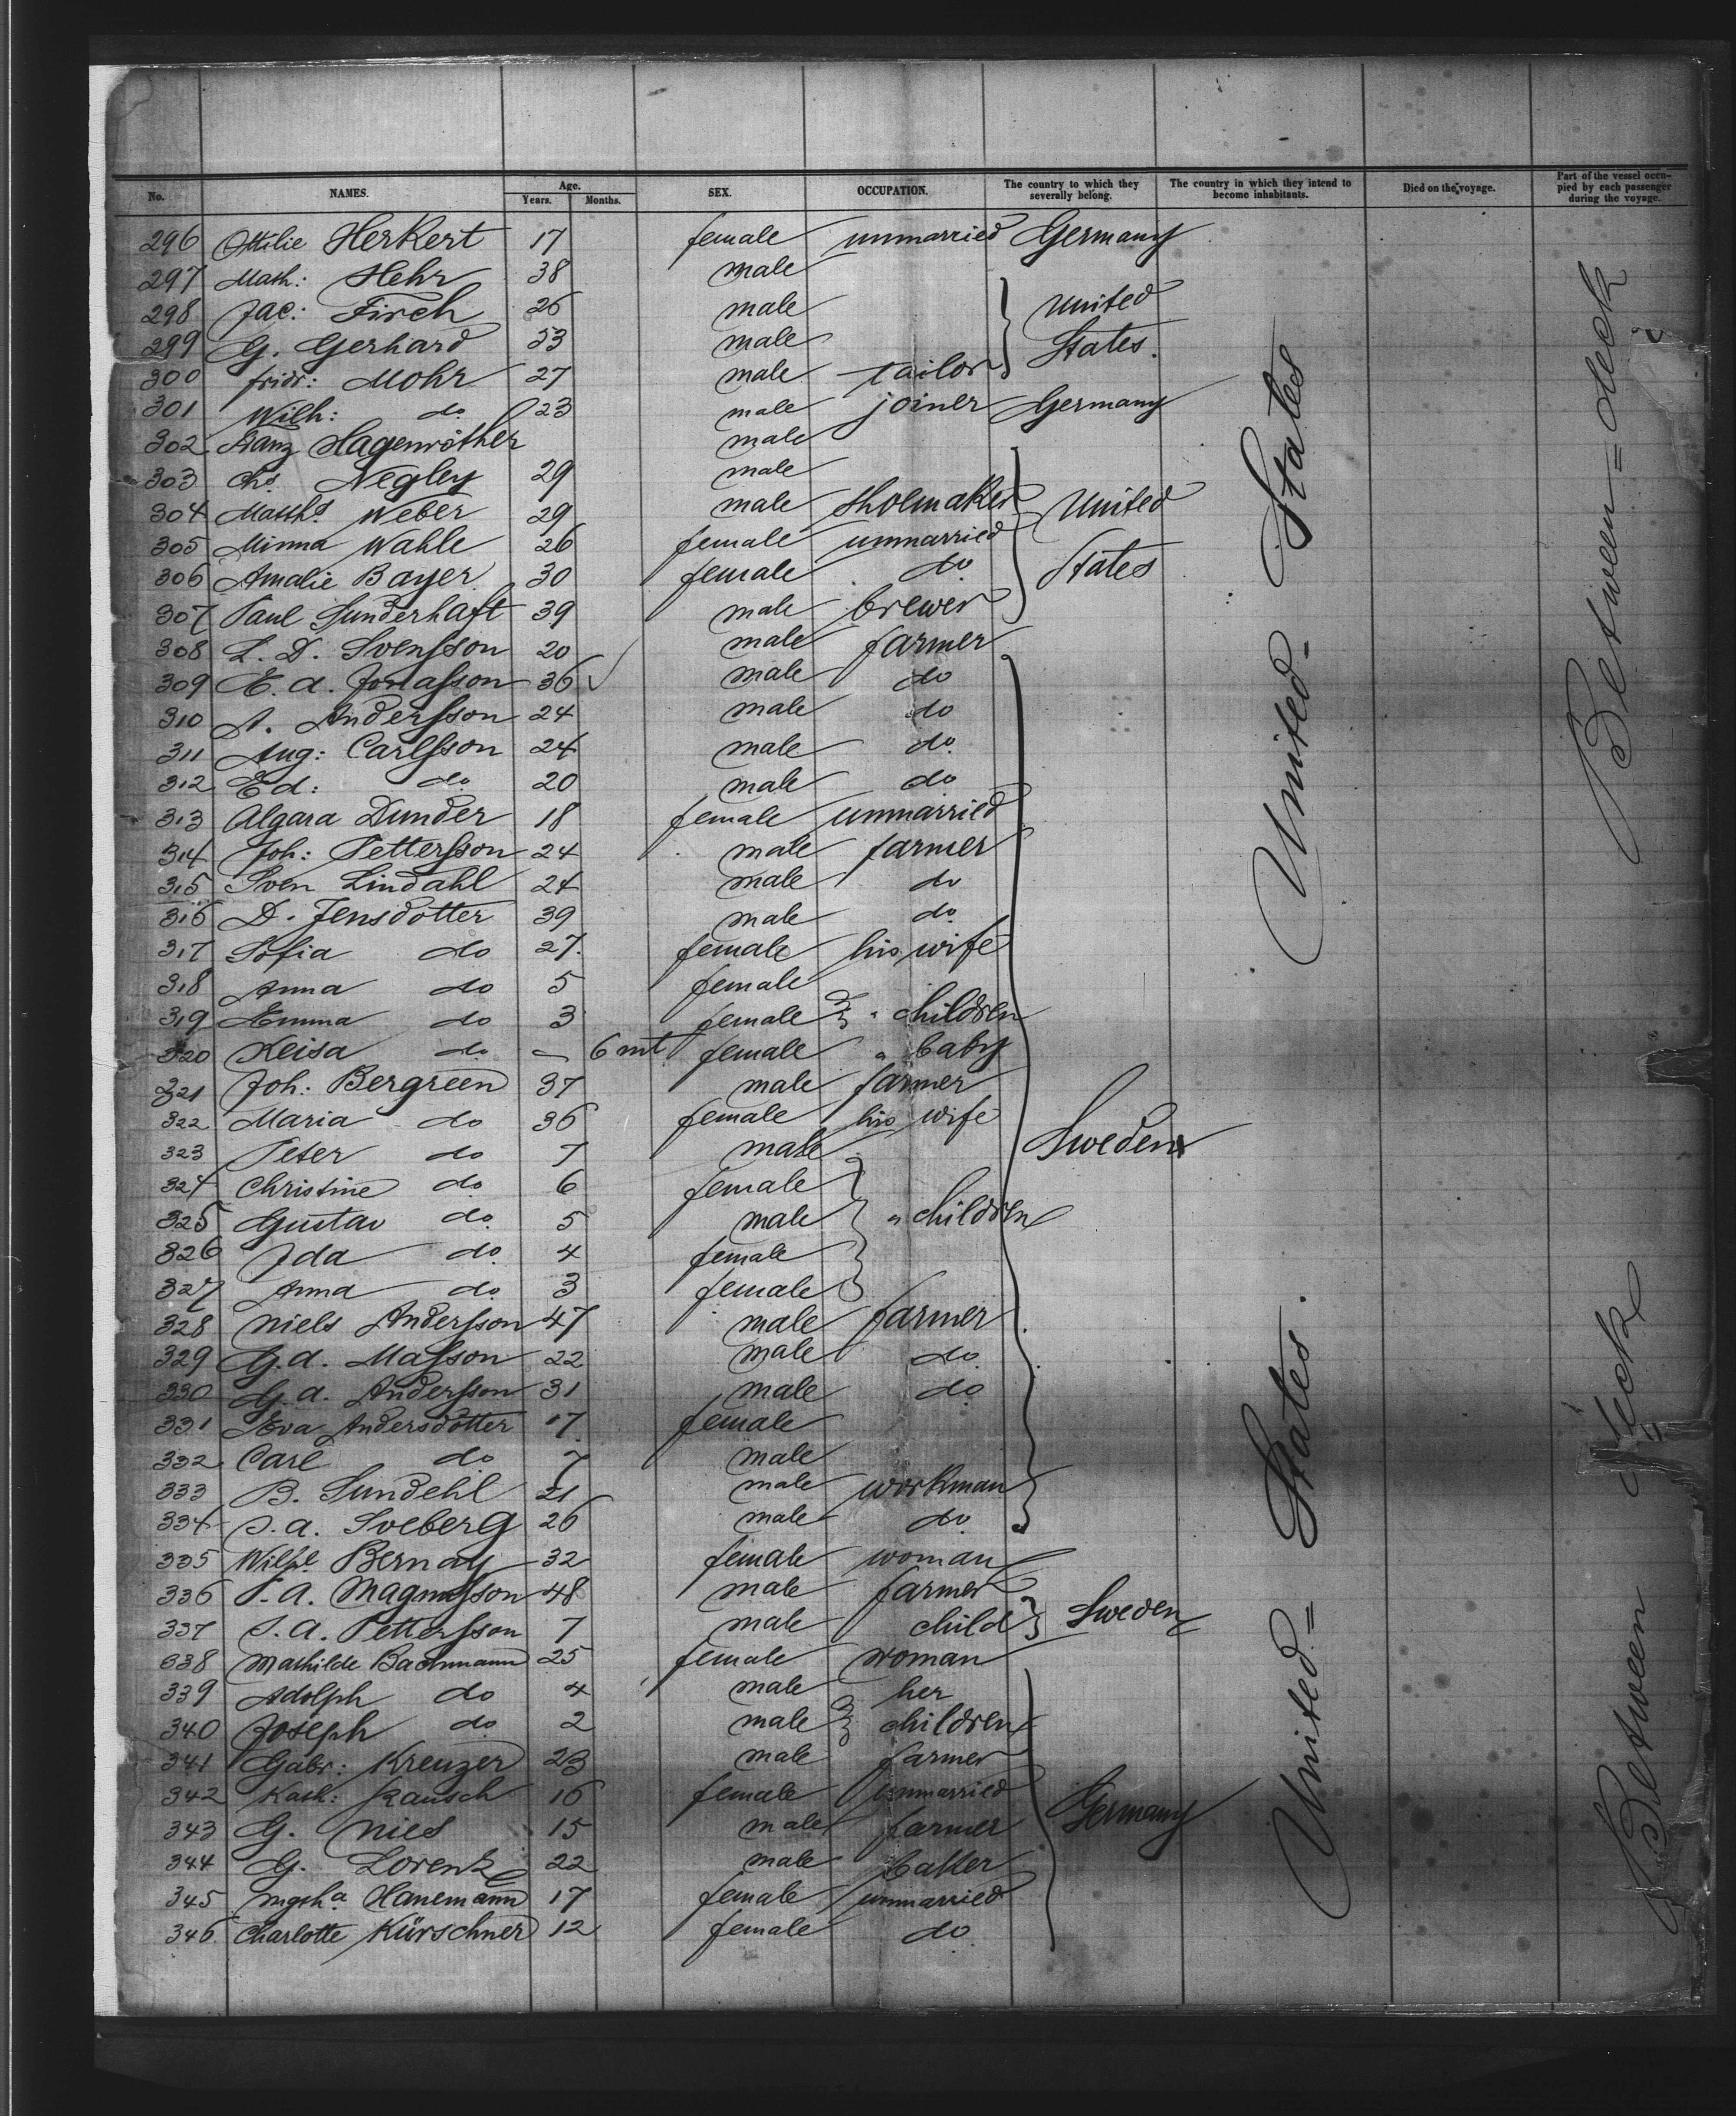 No. NAMES. Age. Years. Months. SEX. OCCUPATION. The country to which they severally belong. The country in which they intend to become inhabitants. Died on the voyage. Part of the vessel occupied by each passenger during the voyage.
296 Ottilie Herkert 17 female unmarried Germany
297 Math: Hehr 38 male
298 Jac: Firch 26 male United
299 G. Gerhard 53 male States.
300 fridr: Mohr 27 male tailor
301 Wilh: do 23 male joiner Germany
302 Hagenröther male
303 Chs. Negley 29 male
304 Matths Weber 29 male shoemaker United
305 Minna Wahle 26 female unmarried
306 Amalie Bayer 30 female do States
307 Paul Sunderhaft 39 male brewer
308 L. D. Svensson 20 male farmer
309 E. A. Jonasson 36 male do
310 A. Andersson 24 male do
311 Aug: Carlsson 24 male do
312 Ed: do 20 male do
313 Algara Dunder 18 female unmarried
314 Joh: Pettersson 24 male farmer
315 Sven Lindahl 24 male do
316 D. Jensdotter 39 male do
317 Sofia do 27. female his wife
318 Anna do 5 female
319 Emma do 3 female " children
320 Keisa do — 6 mt female " baby
321 Joh: Bergreen 37 male farmer
322 Maria do 36 female his wife
323 Peter do 7 male Sweden
324 Christine do 6 female
325 Gustav do 5 male " children
326 Ida do 4 female
327 Anna do 3 female
328 Niels Andersson 47 male farmer
329 G. A. Masson 22 male do
330 G. A. Andersson 31 male do
331 Eva Andersdotter 17 female
332 Carl do 7 male
333 B. Sundehl 21 male workman
334 S. A. Sveberg 26 male do
335 Wilhe Bernay 32 female woman
336 P. A. Magnusson 48 male farmer
337 S. A. Pettersson 7 male child Sweden
338 Mathilde Bachmann 25 female woman
339 Adolph do 4 male her
340 Joseph do 2 male children
341 Gabr: Kreuzer 23 male farmer
342 Kath: Rausch 16 female unmarried
343 G. Nies 15 male farmer Germany
344 G. Lorenz 22 male
345 Mgtha Hanemann 17 female unmarried
346 Charlotte Kürschner 12 female do
United- States
United = States.
Between = deck
Between deck